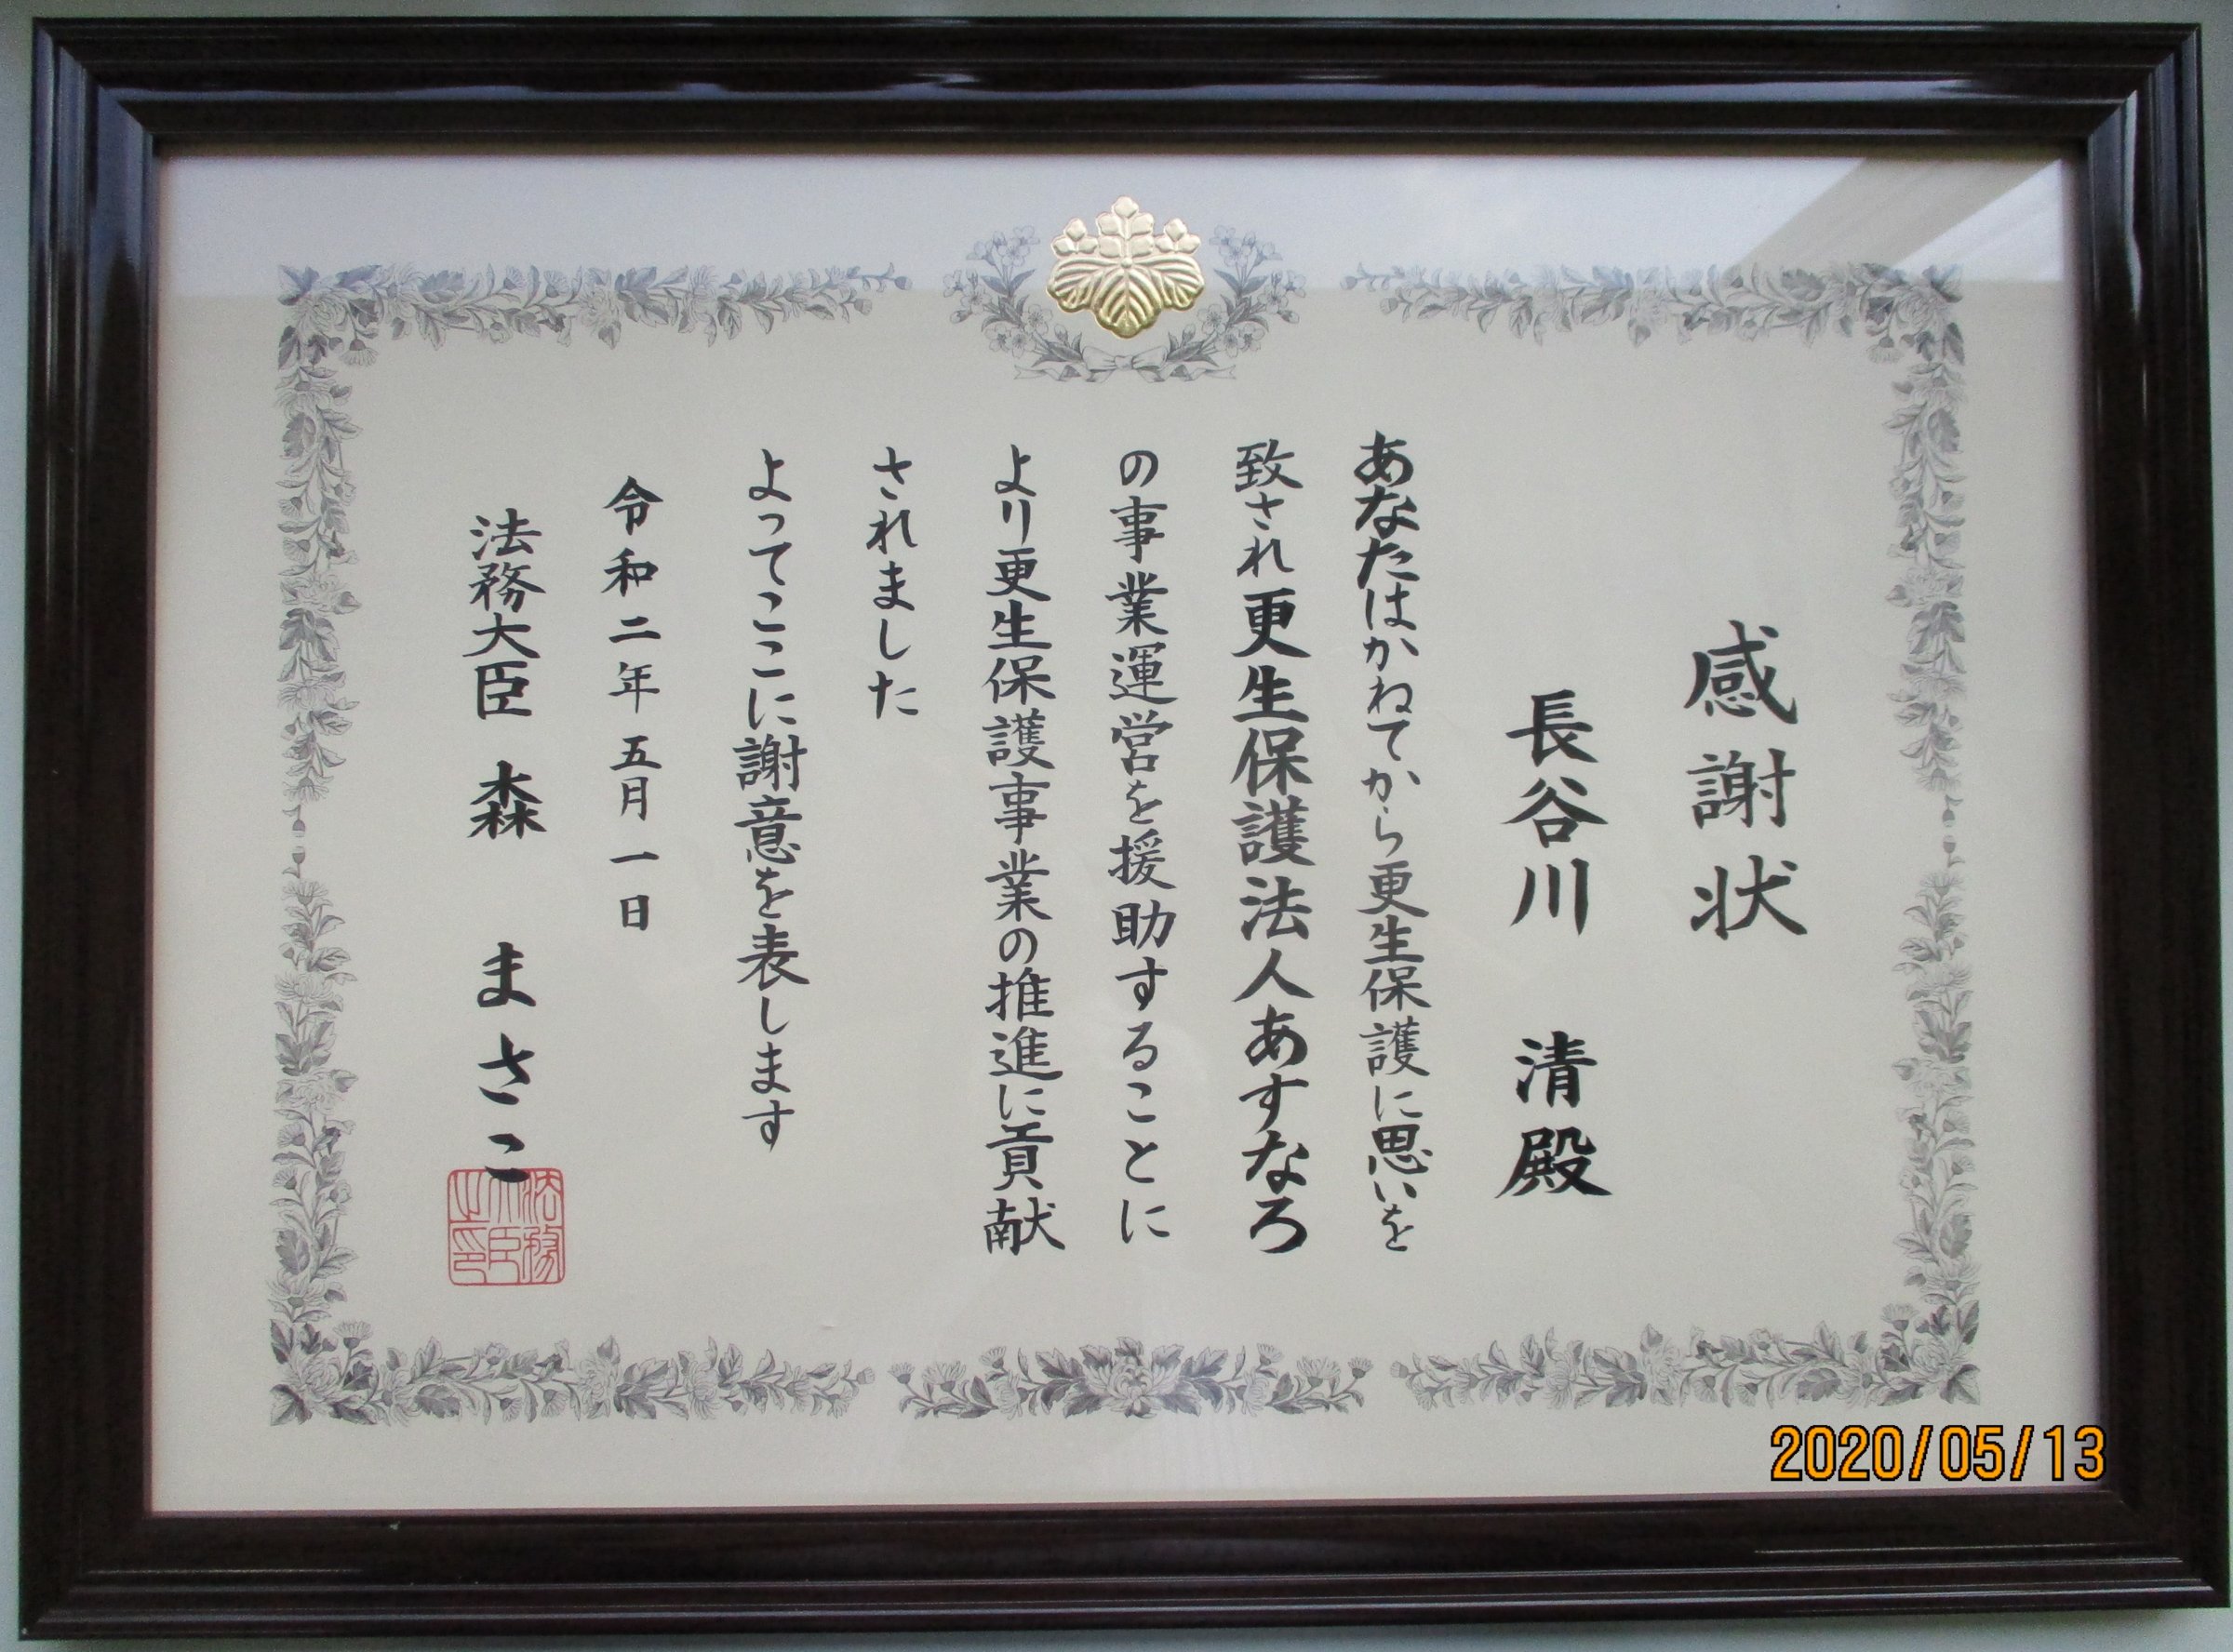 感謝状
長谷川 清殿
あなたはかねてから更生保護に思いを
致され更生保護法人あすなろ
の事業運営を援助することに
より更生保護事業の推進に貢献
されました
よってここに謝意を表します
令和二年五月一日
法務大臣 森 まさこ
法務大臣之印
2020/05/13